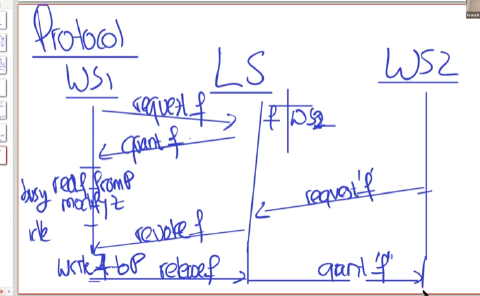 Protocol
WS1 LS WS2
request f
f WS2
grant f
busy read f from P
modify z
request 'f'
idle
revoke f
write f to P release f grant 'f'